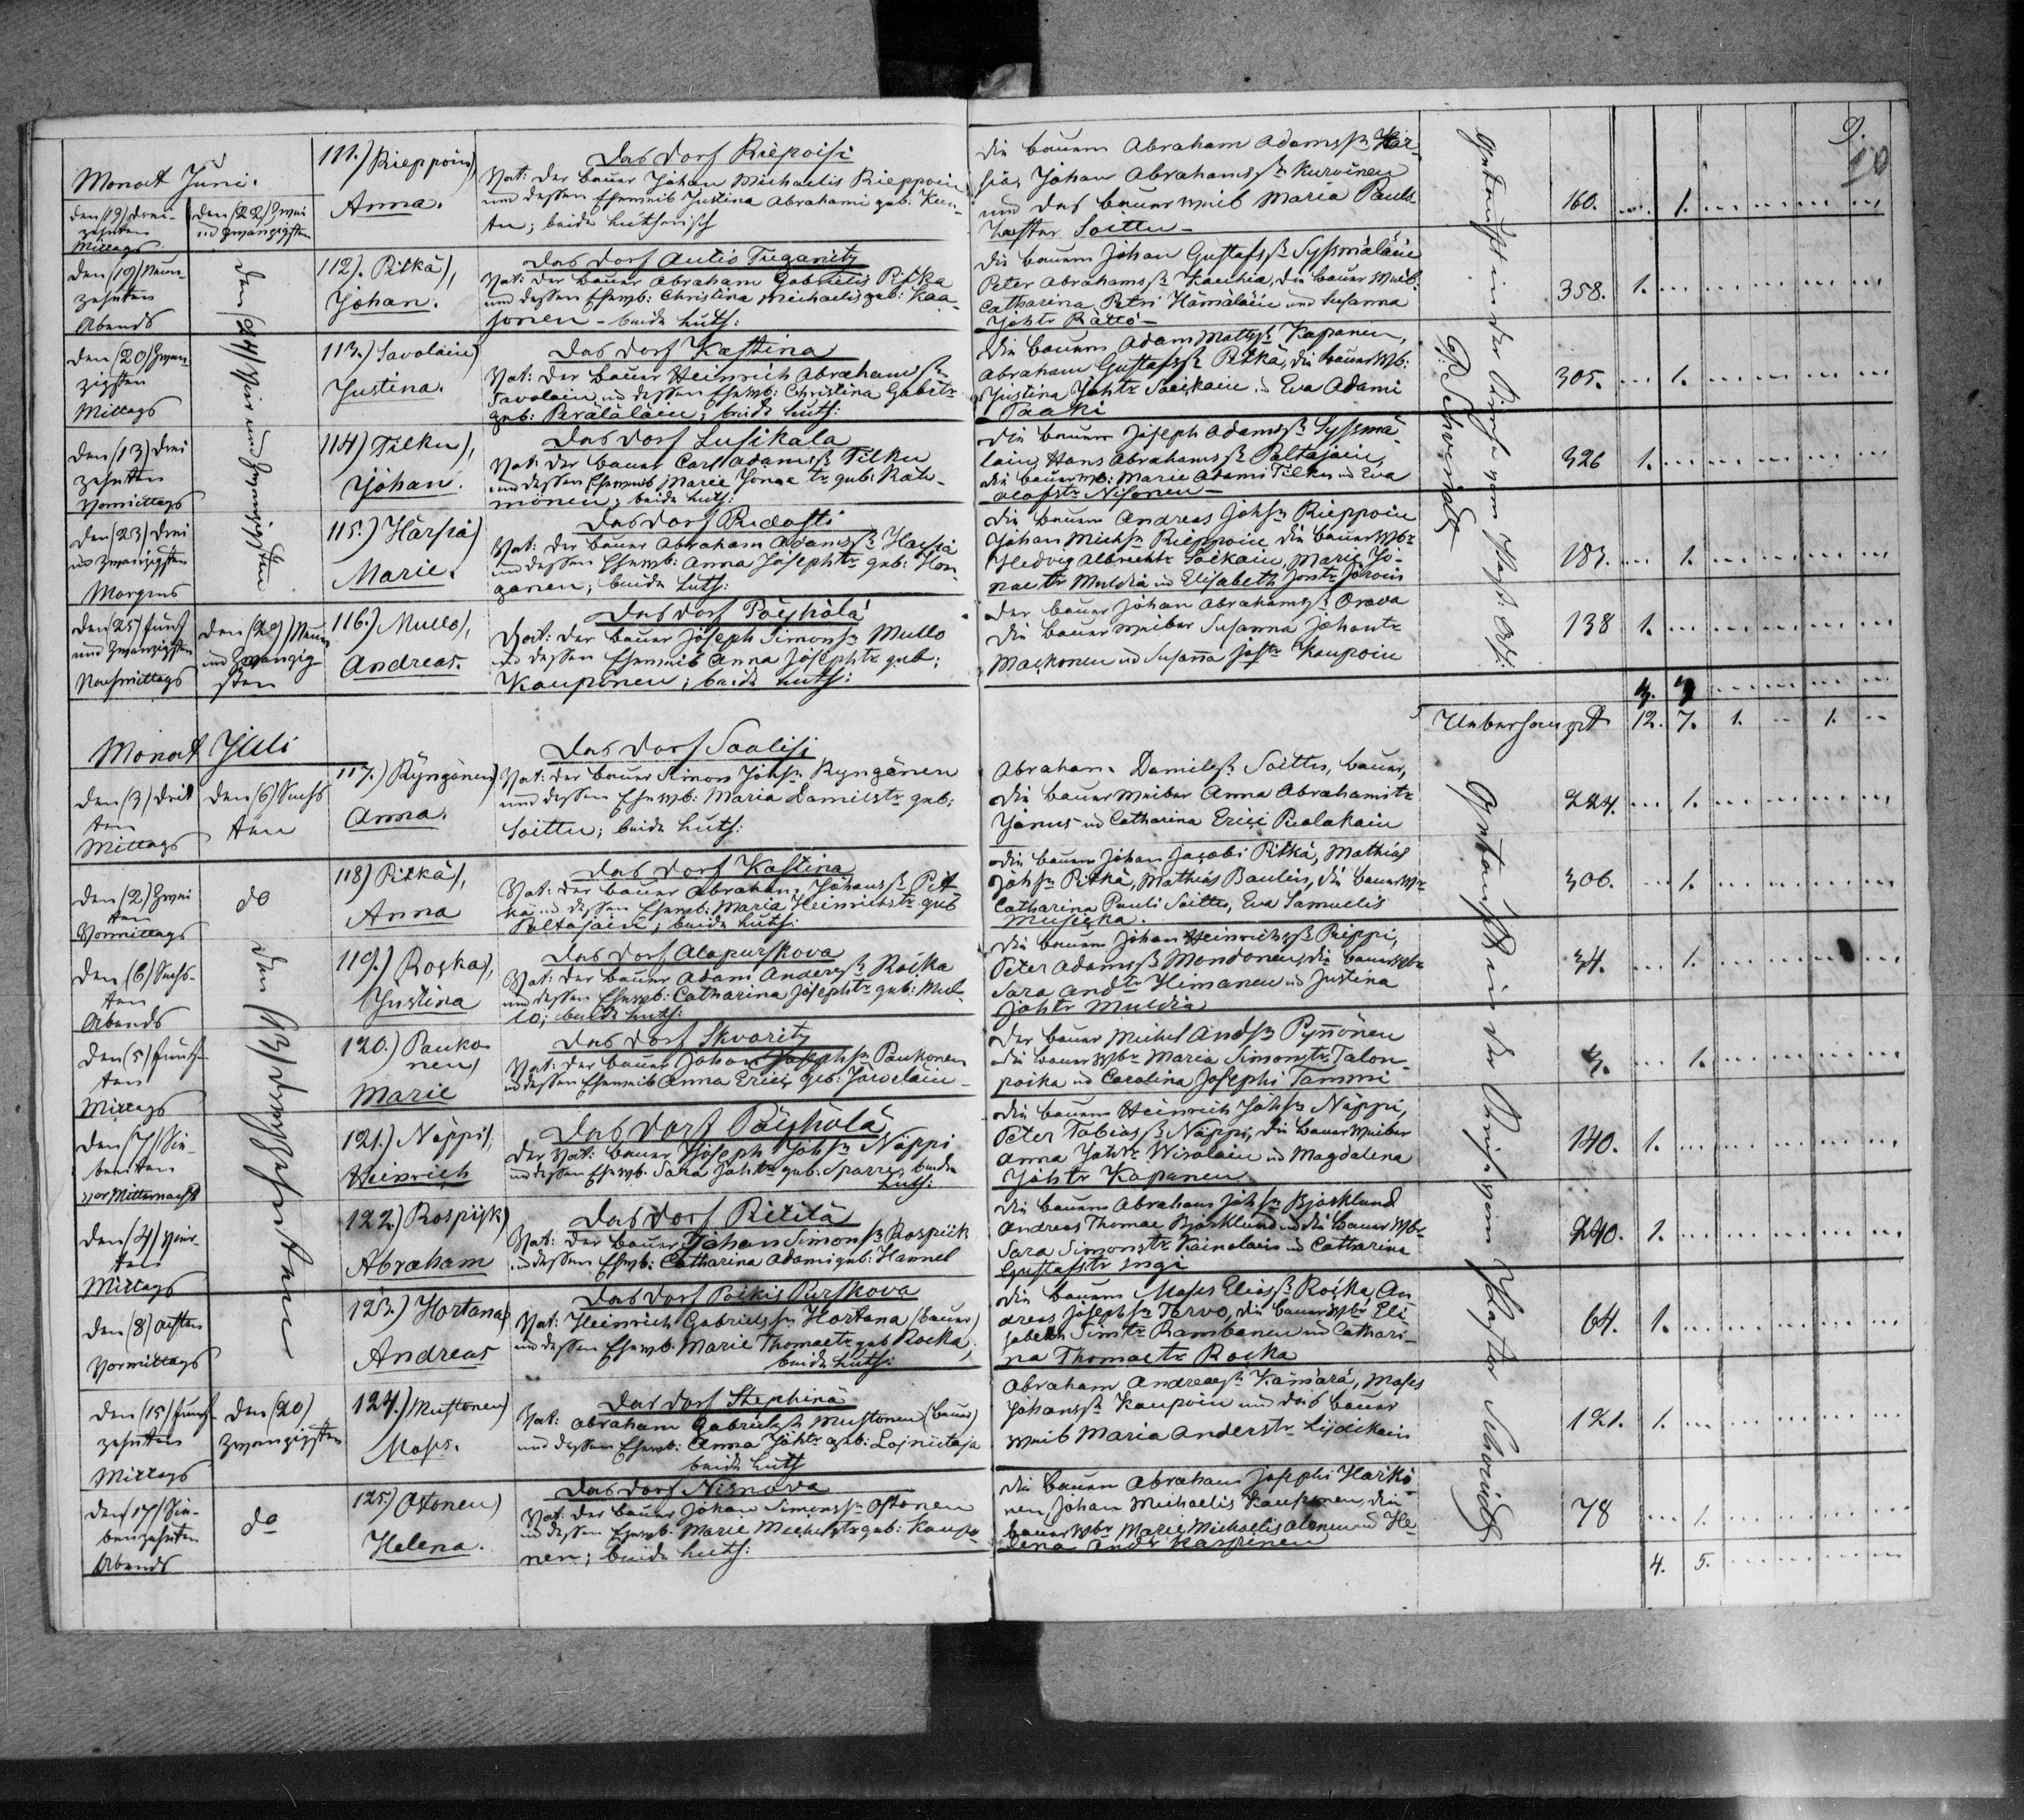 9.
10
Monat Juni.
den (19) drei-
zehnten
Mittags
den (22) zwei
und zwanzigsten
111.) Rieppoin),
Anna.
Das Dorf Riepoisi
Vat: der Bauer Johan Michaelis Rieppoin
und dessen Eheweib Justina Abrahami geb. Kun-
tu; beide lutherisch
die Bauern Abraham Adamsß Här-
siä, Johan Abrahamsß Kurvinen
und das Bauerweib Maria Pauls
tochter Soittu -
160. 1.
den (19) Neun-
zehnten
Abends
den (24) Vier und zwanzigsten
112). Pitkä),
Johan.
Das Dorf Antis Tuganitz
Vat: der Bauer Abraham Gabrielis Pitkä
und dessen Ehewb: Christina Michaelis geb: Kaa-
sonen - beide luth:
die Bauern Johan Gustafsß Syssmäläin
Peter Abrahamsß Kauhia, die Bauer Weib:
Catharina Petri Hämäläin und Susanna
Johtr Rättö -
358. 1.
den (20) Zwan-
zigsten
Mittags
113.) Savolain)
Justina.
Das Dorf Kastina
Vat: der Bauer Heinrich Abrahamsß
Savolain und dessen Ehewb: Christina Gabrtr
geb: Peräläläin; beide luth:
die Bauern Adam Mattsß Kapanen,
Abraham Gustafsß Pitkä, die Bauerwb:
Justina Johtr Saikain u Eva Adami
Paaki
305. 1.
den (13) drei
zehnten
Vormittags
114) Tilku),
Johan.
Das Dorf Lusikala
Vat: der Bauer Carl Adamsß Tilku
und dessen Eheweib Marie Jonae tr geb: Räh-
mönen; beide luth:
die Bauern Joseph Adamsß Syssmä-
lain, Hans Abrahamsß Paltajain,
die Bauerwb: Marie Adami Tilku und Eva
Olofstr Nisonen -
326 1.
den (23) drei
und zwanzigsten
Morgens
115.) Härsiä)
Marie.
Das Dorf Pudosti
Vat: der Bauer Abraham Adamsß Härsiä
und dessen Ehewb: Anna Josephtr geb: Hon-
ganen; beide luth:
die Bauern Andreas Johsn Rieppoin
Johan Michsn Rieppoin die Bauerwbr
Hedvig Albrechtr Soikain, Marie Jo-
naetr Muldia und Elisabeth Jontr Joroin
183. 1.
den (25) fünf
und zwanzigsten
Nachmittags
den (29) Neun
und zwanzig-
sten
116.) Mullo),
Andreas.
Das Dorf Pöyhölä
Vat: der Bauer Joseph Simonsn Mullo
und dessen Eheweib Anna Josephtr geb:
Kauponen; beide luth:
der Bauer Johan Abrahamsß Orava
die Bauerweiber Susanna Johantr
Mackonen und Susana Jostr Kaupoin
138 1.
Getauft in der Kirche vom Past: Adj:
P. Schwindt
Ueberhaupt 12. 7. 1. 1.
Monat Juli
den (3) drit
ten
Mittags
den (6) Sechs
ten
117.) Ryngönen)
Anna.
Das Dorf Saalisi
Vat: der Bauer Simon Johsn Ryngönen
und dessen Ehewb: Maria Danielstr geb:
Soittu; beide luth:
Abraham Danielsß Soittu, Bauer,
die Bauerweiber Anna Abrahamstr
Janus und Catharina Erici Pualakain
224. 1.
den (2) Zwei
ten
Vormittags
do
118) Pitkä),
Anna
Das Dorf Kastina
Vat: der Bauer Abraham Johansß Pit-
kä und dessen Ehewb: Maria Heinrichstr geb
Paltajain; beide luth:
die Bauern Johan Jacobi Pitkä, Mathias
Johsn Pitkä, Mathias Baulin, die Bauerwbr
Catharina Pauli Soittu, Eva Samuelis
Musicka.
306. 1.
den (6) Sechs-
ten
Abends
den (13) dreizehnten
119.) Rocka),
Justina
Das Dorf Alapurskova
Vat: der Bauer Adam Andersß Rocka
und dessen Ehewb: Catharina Josephtr geb: Mul-
lo; beide luth:
die Bauern Johan Heinrichsß Peippi,
Peter Adamsß Mondonen, die Bauerwbr
Sara Andtr Himanen und Justina
Johtr Muldia
34. 1.
den (5) fünf-
ten
Mittags
120.) Pauko-
nen)
Marie
Das Dorf Skvoritz
Vat: der Bauer Johan Josephsn Paukonen
und dessen Eheweib Anna Erici geb: Jävelain -
der Bauer Michel Andsn Pynnönen
die Bauerwbr Maria Simonstr Talon-
poika und Carolina Josephi Tammi
3. 1.
den (7) Sie-
benten
vor Mitternacht
121.) Näppi),
Heinrich
Das Dorf Pöyhölä
der Vat: Bauer Joseph Johsn Näppi
und dessen Ehewb. Sara Johtr geb: Sparre; beide
luth:
die Bauern Heinrich Johsn Näppi,
Peter Tobiasß Näppi, die Bauerweiber
Anna Johtr Wirolain und Magdalena
Johtr Kapanen
140. 1.
den (4) Vier-
ten
Mittags
122.) Rospijk)
Abraham
Das Dorf Pietilä
Vat: der Bauer Johan Simonsß Rospiik
und dessen Ehewb: Catharina Adami geb: Hannel
die Bauern Abraham Johsn Bjorklund
Andreas Thomae Björklund und die Bauerwbr
Sara Simonstr Kainolain und Catharina
Gustafstr Ingi
240. 1.
den (8) Achten
Vormittags
123.) Hortana)
Andreas
Das Dorf Poikis Purskova
Vat: Heinrich Gabrielssn Hortana (Bauer)
und dessen Ehewb. Marie Thomaetr geb Rocka;
beide luth:
die Bauern Moses Eliasß Rocka, An-
dreas Josephsn Torvo, die Bauerwbr Eli-
sabeth Simtr Rambanen und Cathari-
na Thomaetr Rocka
64. 1.
den (15) fünf-
zehnten
Mittags
den (20)
zwanzigsten
124.) Mustonen)
Moses.
Das Dorf Stephinä
Vat: Abraham Gabrielsß Mustonen (Bauer)
und dessen Ehewb: Anna Johtr geb: Lojniitaja
beide luth
Abraham Andreaesß Kämärä, Moses
Johansß Kaupoin und das Bauer
weib Maria Anderstr Lijdikain
121. 1.
den (17) Sie-
benzehnten
Abends
do
125.) Ostonen)
Helena.
Das Dorf Nisnova
Vat: der Bauer Johan Simonssn Ostonen
und dessen Ehewb: Marie Michelstr geb: Kaupo-
nen; beide luth:
die Bauern Abraham Josephi Harkö-
nen, Johan Michaelis Kauponen, die
Bauerwbr Marie Michaelis Alonen und He-
lena Andr Karpinen
78 1.
Getauft in der Kirche vom Pastor Schwindt
4. 5.